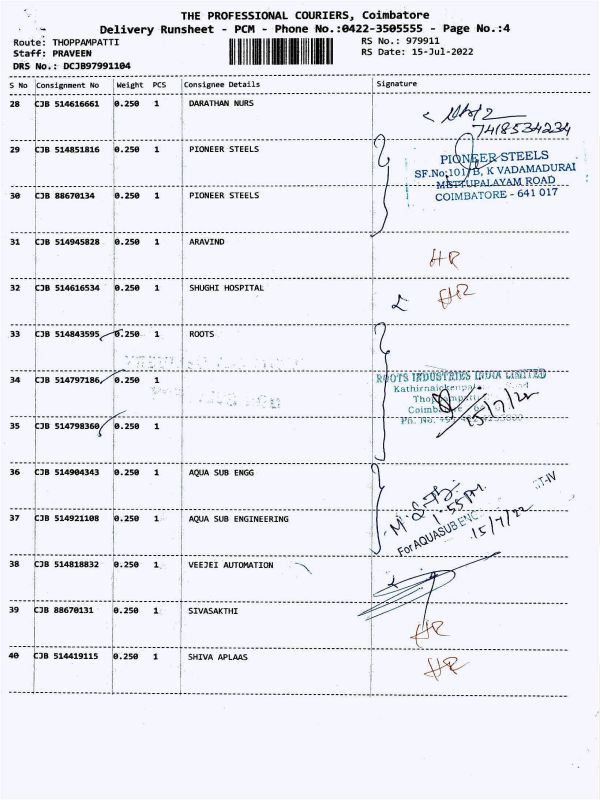 THE PROFESSIONAL COURIERS, Coimbatore
Delivery Runsheet - PCM - Phone No.:0422-3505555 - Page No.:4
Route: THOPPAMPATTI
RS No.: 979911
Staff: PRAVEEN
RS Date: 15-Jul-2022
DRS No.: DCJB97991104
S No Consignment No Weight PCS Consignee Details Signature
28 CJB 514616661 0.250 1 DARATHAN NURS
7418534234
29 CJB 514851816 0.250 1 PIONEER STEELS
PIONEER STEELS
SF.No:101/B, K VADAMADURAI
METTUPALAYAM ROAD
COIMBATORE - 641 017
30 CJB 88670134 0.250 1 PIONEER STEELS
31 CJB 514945828 0.250 1 ARAVIND
HR
32 CJB 514616534 0.250 1 SHUGHI HOSPITAL
HR
33 CJB 514843595 0.250 1 ROOTS
34 CJB 514797186 0.250 1
ROOTS INDUSTRIES INDIA LIMITED
Kathirnaickenpalayam Road
15/7/22
35 CJB 514798360 0.250 1
36 CJB 514904343 0.250 1 AQUA SUB ENGG
1:55PM
37 CJB 514921108 0.250 1 AQUA SUB ENGINEERING
For AQUASUB ENG
15/7/22
38 CJB 514818832 0.250 1 VEEJEI AUTOMATION
39 CJB 88670131 0.250 1 SIVASAKTHI
HR
40 CJB 514419115 0.250 1 SHIVA APLAAS
HR